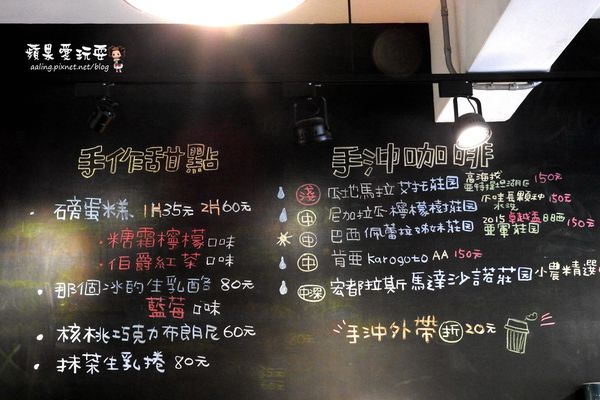 蘋果愛玩耍
aaling.pixnet.net/blog
手作甜點
磅蛋糕 1片35元 2片60元
·糖霜檸檬口味
·伯爵紅茶口味
那個冰的生乳酪 80元
藍莓口味
核桃巧克力布朗尼 60元
抹茶生乳捲 80元
手沖咖啡
淺 瓜地馬拉 艾托莊园 高海拔 150元
中 尼加拉瓜 檸檬樹莊园 水洗 150元
中 巴西 佩蕾拉姊妹莊园 2015 卓越盃 亞軍莊园 150元
中 肯亞 Karogoto AA 150元
中深 宏都拉斯 馬達沙諾莊园 小農精選
手沖外帶折20元